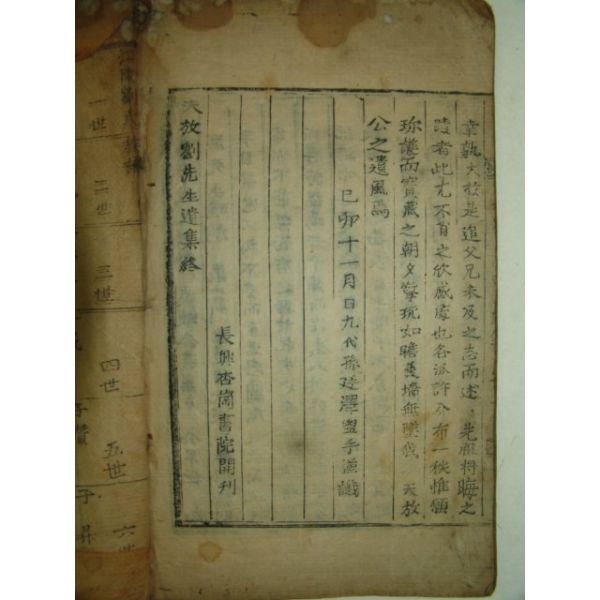 幸孰大於是追父兄未及之志而述先啟將晦之
蹟者此尤不肖之欣感處也各派許分布一秩惟願
珎護而寶藏之朝夕擎玩如瞻羹墻無墜我 天放
公之遺風焉
己卯十一月日九代孫廷澤盥手謹識
長興杏崗書院開刊
天放劉先生遺集終
一世
二世
三世
四世
五世
六世